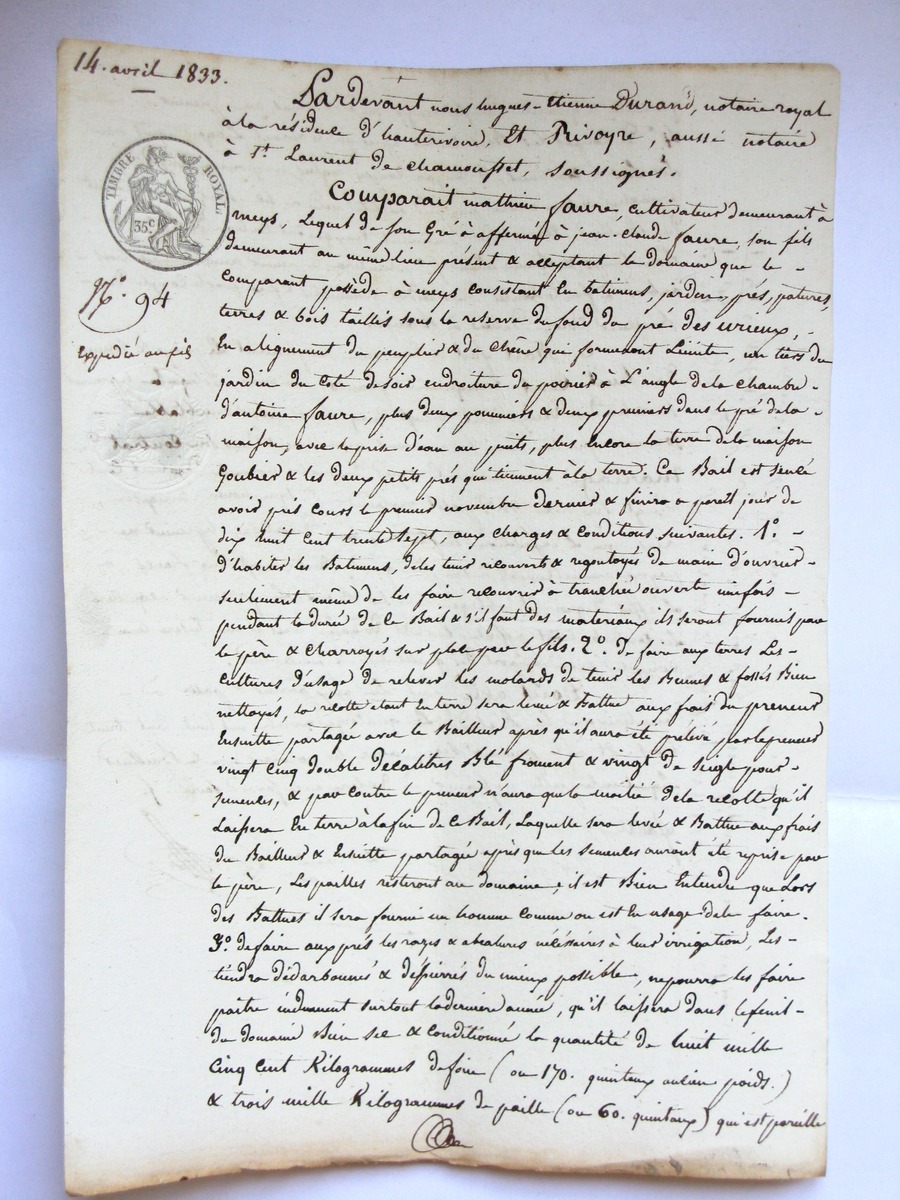 14. avril 1833.
Pardevant nous hugues-Etienne Durand, notaire royal
à la résidence d'hauterivoire, Et Privoyre, aussi notaire
à St. Laurent de chamousset, soussignés.
TIMBRE ROYAL
35c
Comparait mathieu faure, cultivateur demeurant à
meys, Lequel de son Gré à affermé à jean-claude faure, son fils
demeurant au même lieu présent & acceptant le domaine que le -
comparant possède à meys consistant En batimens, jardin, prés, patures,
N.° 94
terres & bois taillis sous la reserve du fond du pré des urieux, -
Expédié au fils
En alignement du peuplier & du Chêne qui formeront Limite, un tiers du
jardin du Coté de soir endroiture du poirier à L'angle de la chambre -
d'antoine faure, plus deux pommiers & deux pruniers dans le pré de la -
maison, avec la prise d'eau au puits, plus encore la terre de la maison
Goubier & les deux petits prés qui tiennent à la terre. Ce Bail est sensé
avoir pris cours le premier novembre dernier & finira a pareil jour de
dix huit cent trente sept, aux charges & conditions suivantes. 1.° -
d'habiter les Batimens, de les tenir recouverts & regoutoyés de main d'ouvrier -
seulement même de les faire recouvrir à tranchée ouverte une fois -
pendant la durée de ce Bail & s'il faut des materiaux ils seront fournis par
le père & Charroyés sur place par le fils. 2.° de faire aux terres Les -
cultures d'usage de relever les molards de tenir les Bennes & fossés Bien
nettoyés, la récolte étant En terre sera levée & Battue aux frais du preneur
Ensuitte partagée avec le Bailleur après qu'il aura été prélevé par le preneur
vingt cinq double Décalitres Blé froment & vingt de seigle pour -
semences, & par contre le preneur n'aura que la moitié de la récolte qu'il
Laissera En terre à la fin de ce Bail, Laquelle sera levée & Battue aux frais
du Bailleur & Ensuitte partagée après que les semences auront été reprise par
le père, Les pailles resteront au domaine, il est Bien Entendu que Lors
des Battues il sera fourni un homme comme on est En usage de le faire.
3.° de faire aux prés les razes & abcatures nécéssaires à leur irrigation, Les -
tiendra dédarbounés & dépierrés du mieux possible, ne pourra les faire
paitre indument surtout la derniere année, qu'il laissera dans le fenil -
du domaine Bien sec & conditionné la quantité de huit mille
cinq cent Kilogrammes de foin (ou 170. quintaux ancien poids.)
& trois mille Kilogrammes de paille (ou 60. quintaux) qui est pareille